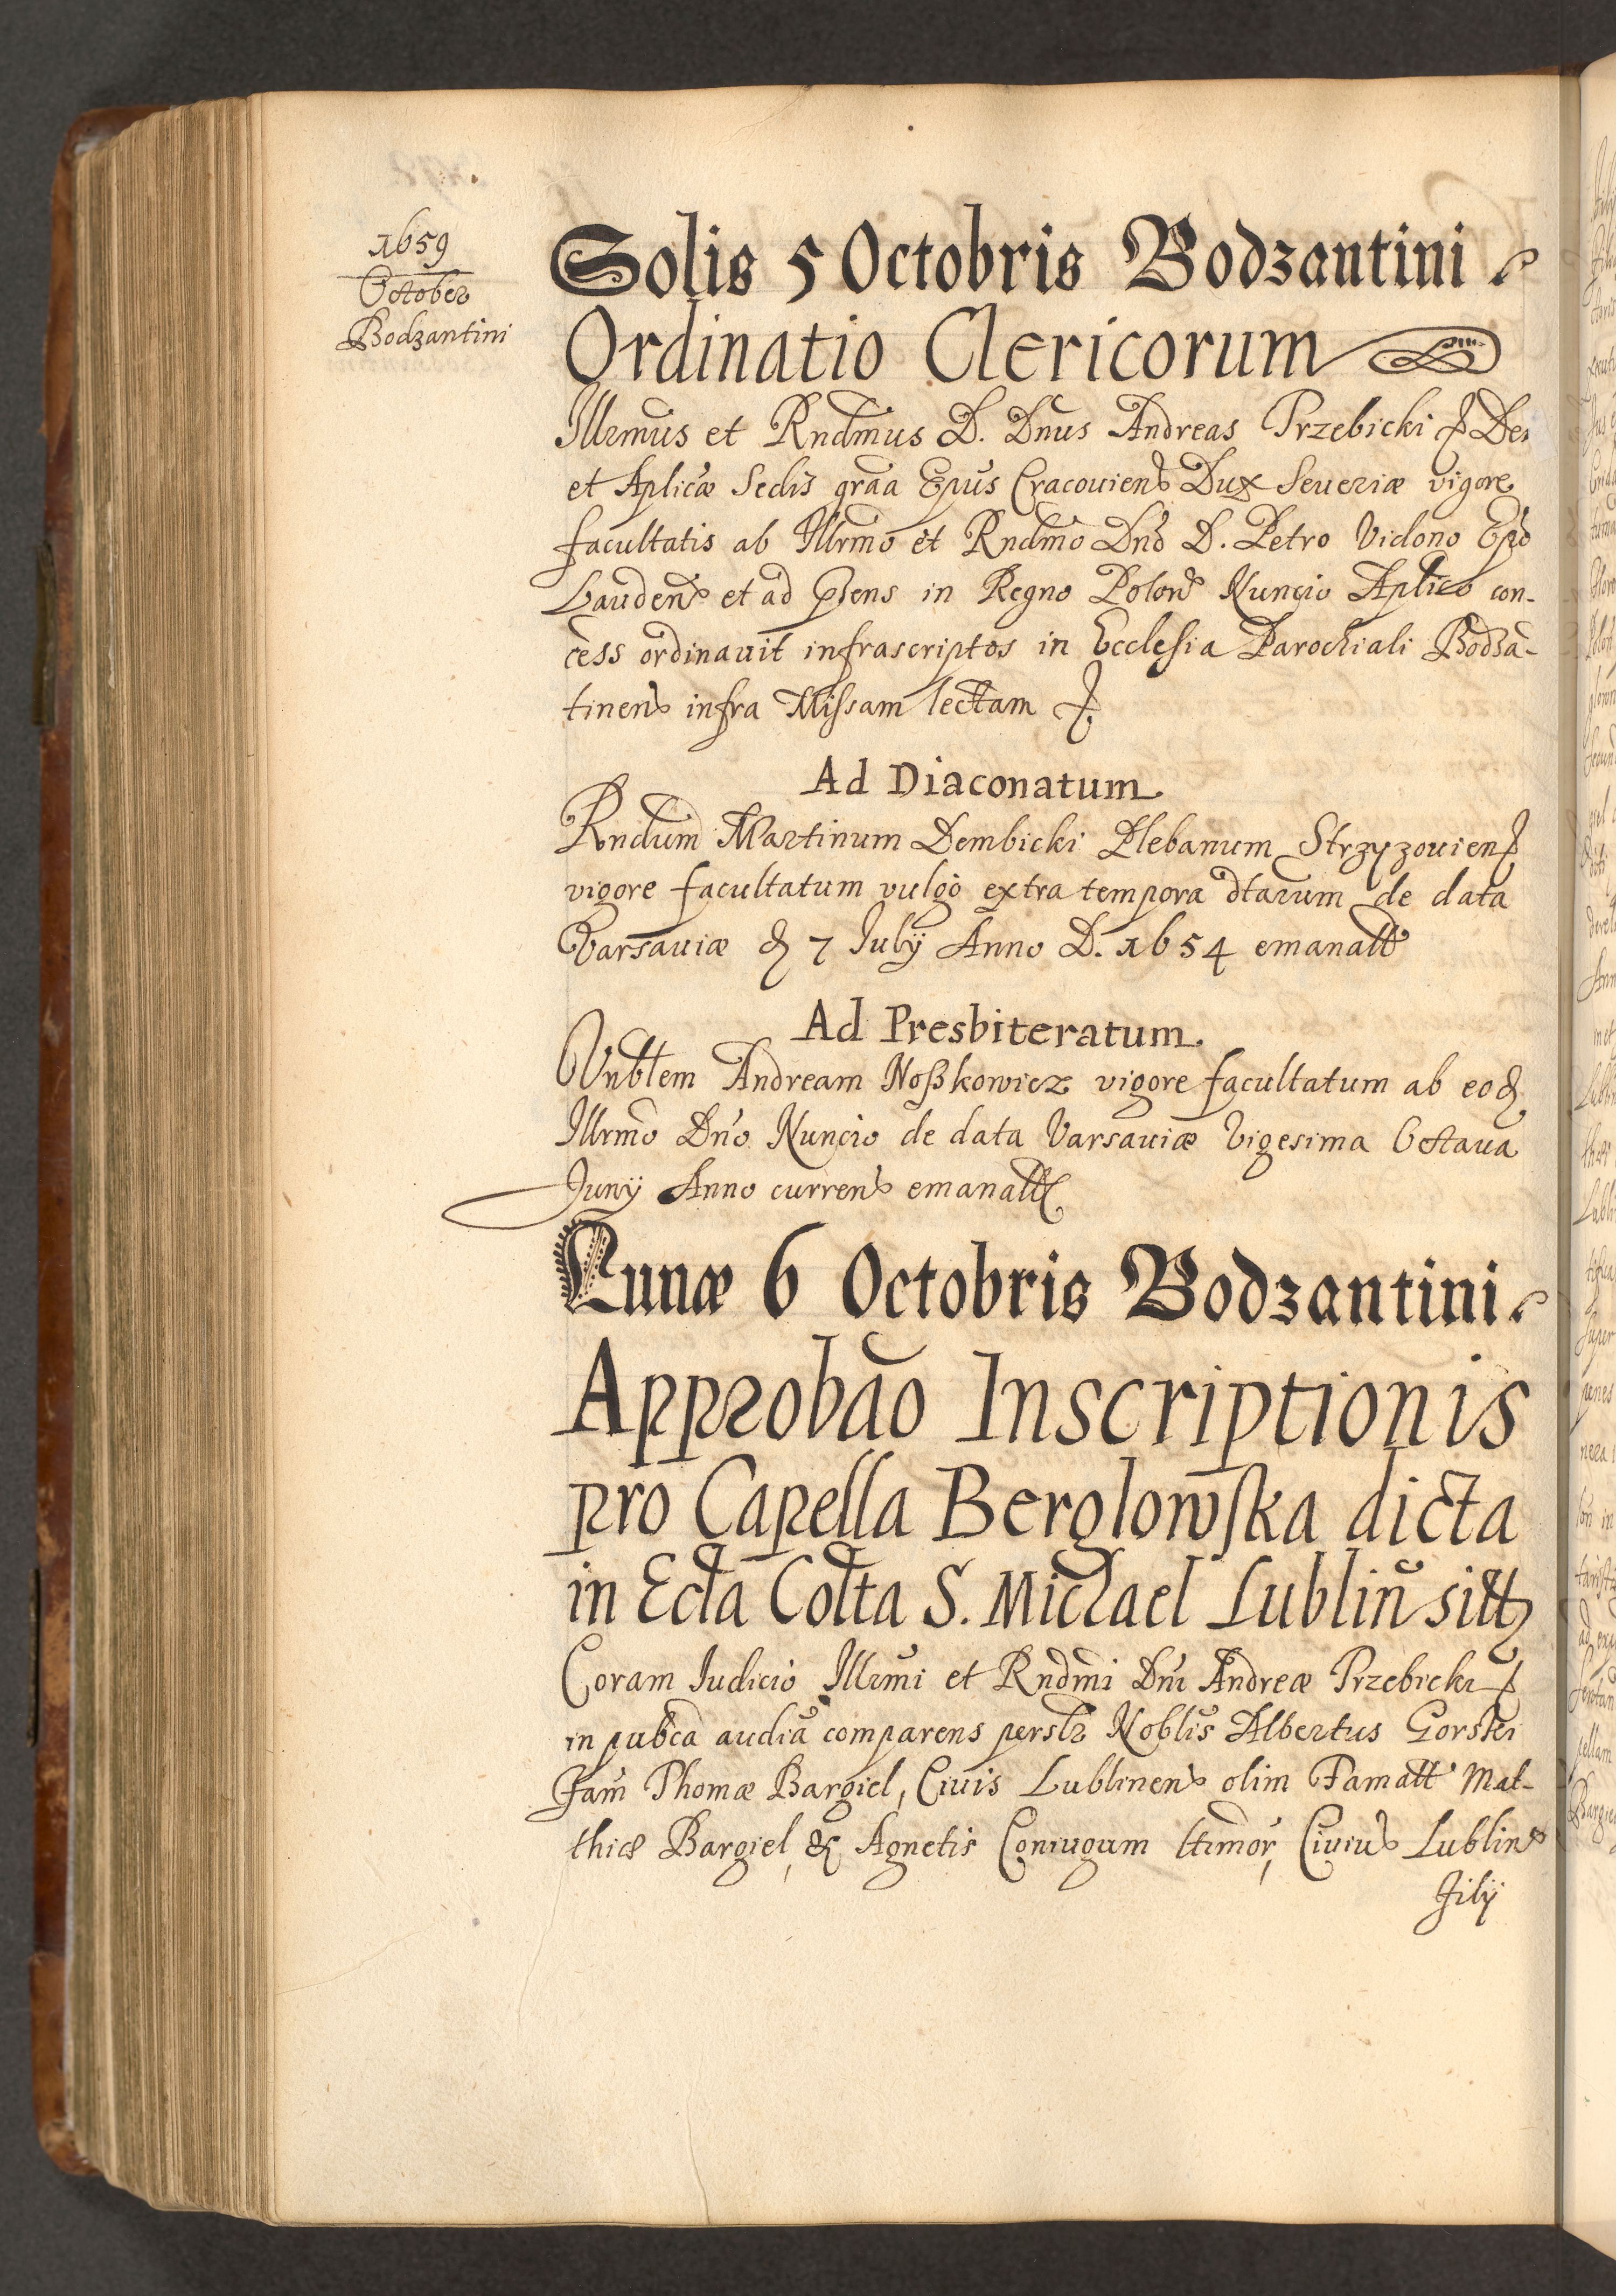 1659
October
Bodzantini
Solis 5 Octobris Bodzantini
Ordinatio Clericorum
Illrmus et Rndmus D. Dnus Andreas Przebicki Dei
et Aplicæ Sedis graa Epus Cracouiens Dux Seueriæ vigore
facultatis ab Illrmo et Rndmo Dno D. Petro Vidono Epo
Lauden et ad pns in Regno Polon Nuncio Aplico con-
cess ordinauit infrascriptos in Ecclesia Parochiali Bodza-
tinens infra Missam lectam
Ad Diaconatum
Rndum Martinum Dembicki Plebanum Strzyzouien
vigore facultatum vulgo extra tempora dtarum de data
Varsauiæ d 7 Julÿ Anno D. 1654 emanatt
Ad Presbiteratum
Vnblem Andream Noßkowicz vigore facultatum ab eod
Illrmo Dno Nuncio de data Varsauiæ Vigesima Octaua
Junÿ Anno currens emanatt
Lunæ 6 Octobris Bodzantini
Approbao Inscriptionis
pro Capella Berglowska dicta
in Ecla Colta S. Michael Lublin sitt
Coram Judicio Illrmi et Rndmi Dni Andreæ Przebicki
in pubca audia comparens perslr Noblis Albertus Gorski
Fam Thomæ Bargiel, Ciuis Lublinens olim Famatt Mat-
thiæ Bargiel, & Agnetis Coniugum ltimor, Ciuiu Lublin
Filÿ